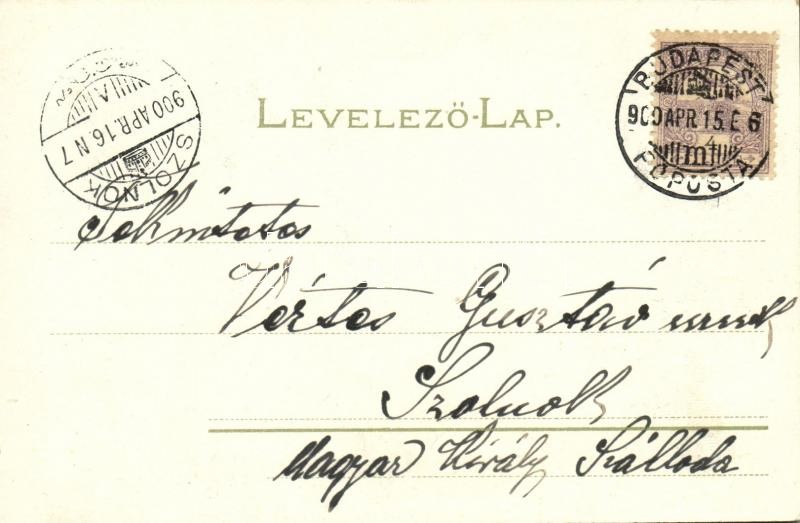 LEVELEZŐ-LAP.
BUDAPEST
900 APR. 15. E 6
m
FŐPOSTA
SZOLNOK
900 APR. 16. N 7
A
Tekintetes
Vértes Gusztáv urnak
Szolnok
Magyar Király Szálloda